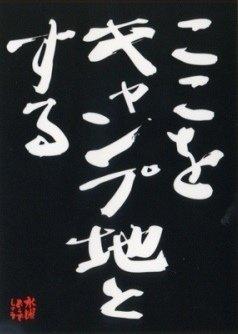 ここを
キャンプ地と
する
水曜
どうでしょう